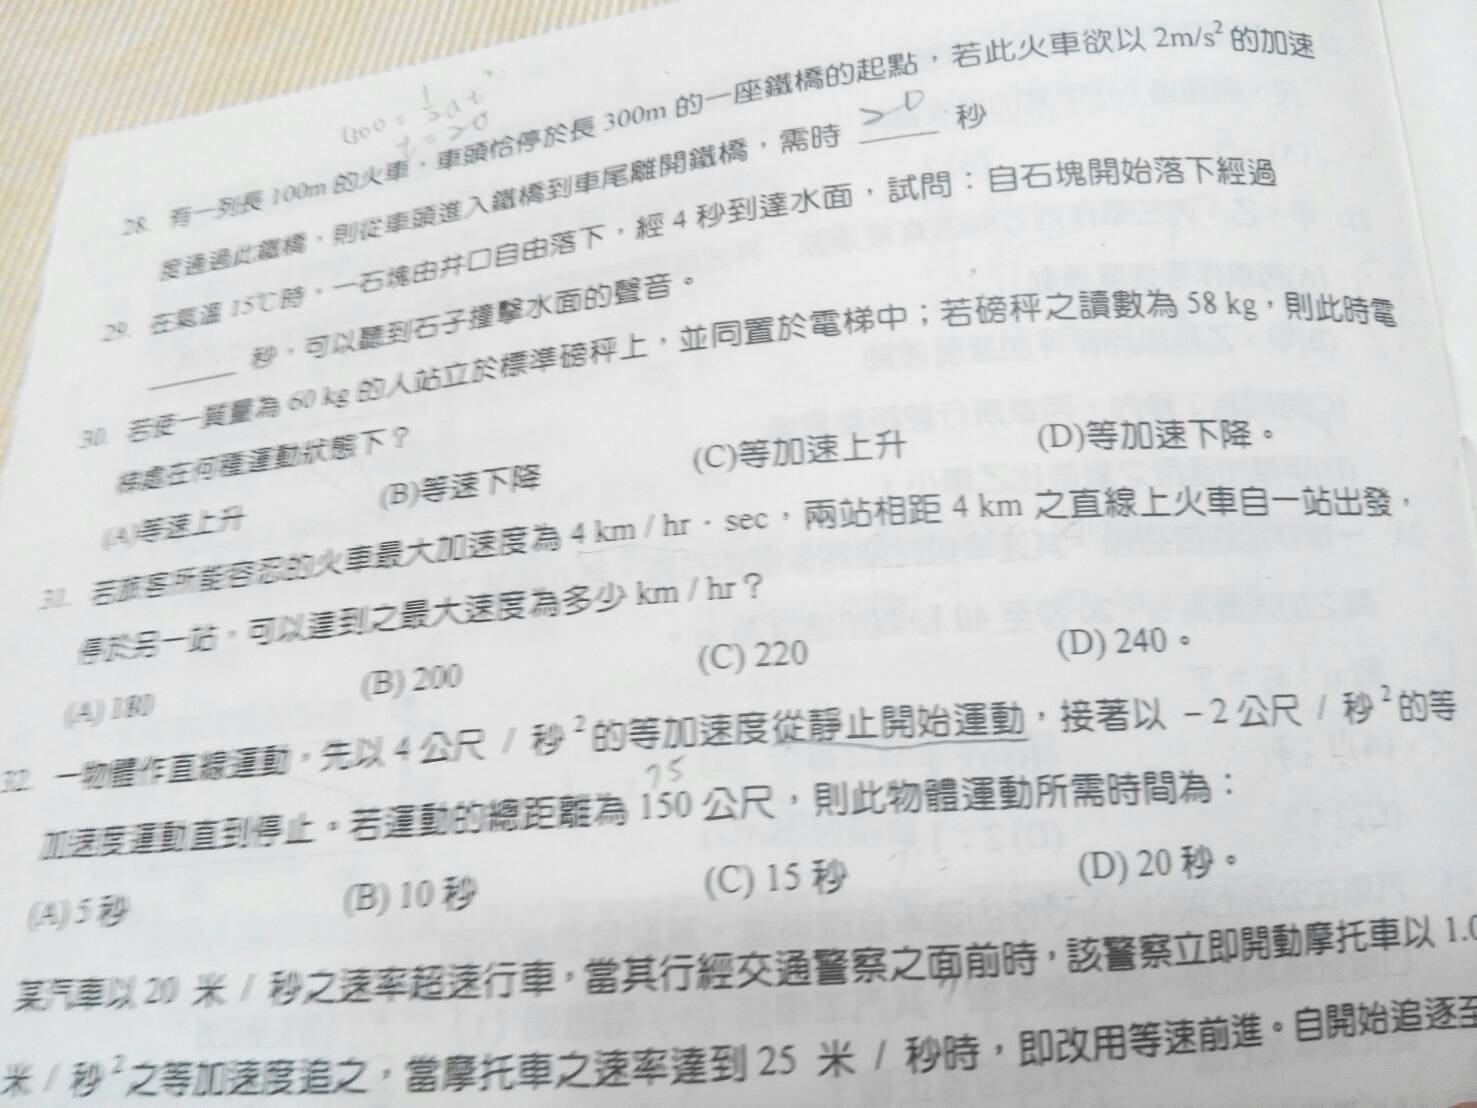 400 = 1/2 a t²
t = 20
28. 有一列長 100m 的火車，車頭恰停於長 300m 的一座鐵橋的起點，若此火車欲以 2m/s² 的加速
度通過此鐵橋，則從車頭進入鐵橋到車尾離開鐵橋，需時 20 秒
29. 在氣溫 15℃時，一石塊由井口自由落下，經 4 秒到達水面，試問：自石塊開始落下經過
______ 秒，可以聽到石子撞擊水面的聲音。
30. 若使一質量為 60 kg 的人站立於標準磅秤上，並同置於電梯中；若磅秤之讀數為 58 kg，則此時電
梯處在何種運動狀態下？
(A)等速上升 (B)等速下降 (C)等加速上升 (D)等加速下降。
31. 若旅客所能容忍的火車最大加速度為 4 km / hr · sec，兩站相距 4 km 之直線上火車自一站出發，
停於另一站，可以達到之最大速度為多少 km / hr？
(A) 180 (B) 200 (C) 220 (D) 240。
32. 一物體作直線運動，先以 4 公尺 / 秒² 的等加速度從靜止開始運動，接著以 －2 公尺 / 秒² 的等
75
加速度運動直到停止。若運動的總距離為 150 公尺，則此物體運動所需時間為：
(A) 5 秒 (B) 10 秒 (C) 15 秒 (D) 20 秒。
某汽車以 20 米 / 秒之速率超速行車，當其行經交通警察之面前時，該警察立即開動摩托車以 1.0
米 / 秒² 之等加速度追之，當摩托車之速率達到 25 米 / 秒時，即改用等速前進。自開始追逐至